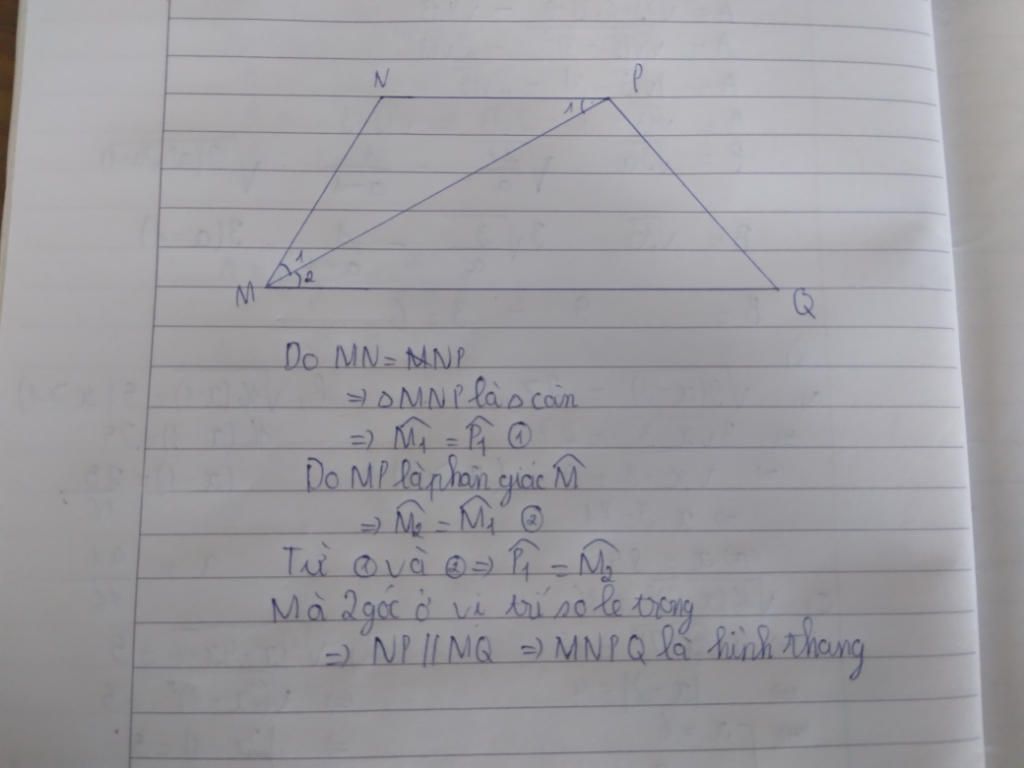 N P
1
1
2
M Q
Do MN = NP
⇒ ▵MNP là ▵ cân
⇒ M̂₁ = P̂₁ ①
Do MP là phân giác M̂
⇒ M̂₂ = M̂₁ ②
Từ ① và ② ⇒ P̂₁ = M̂₂
Mà 2 góc ở vị trí so le trong
⇒ NP // MQ ⇒ MNPQ là hình thang